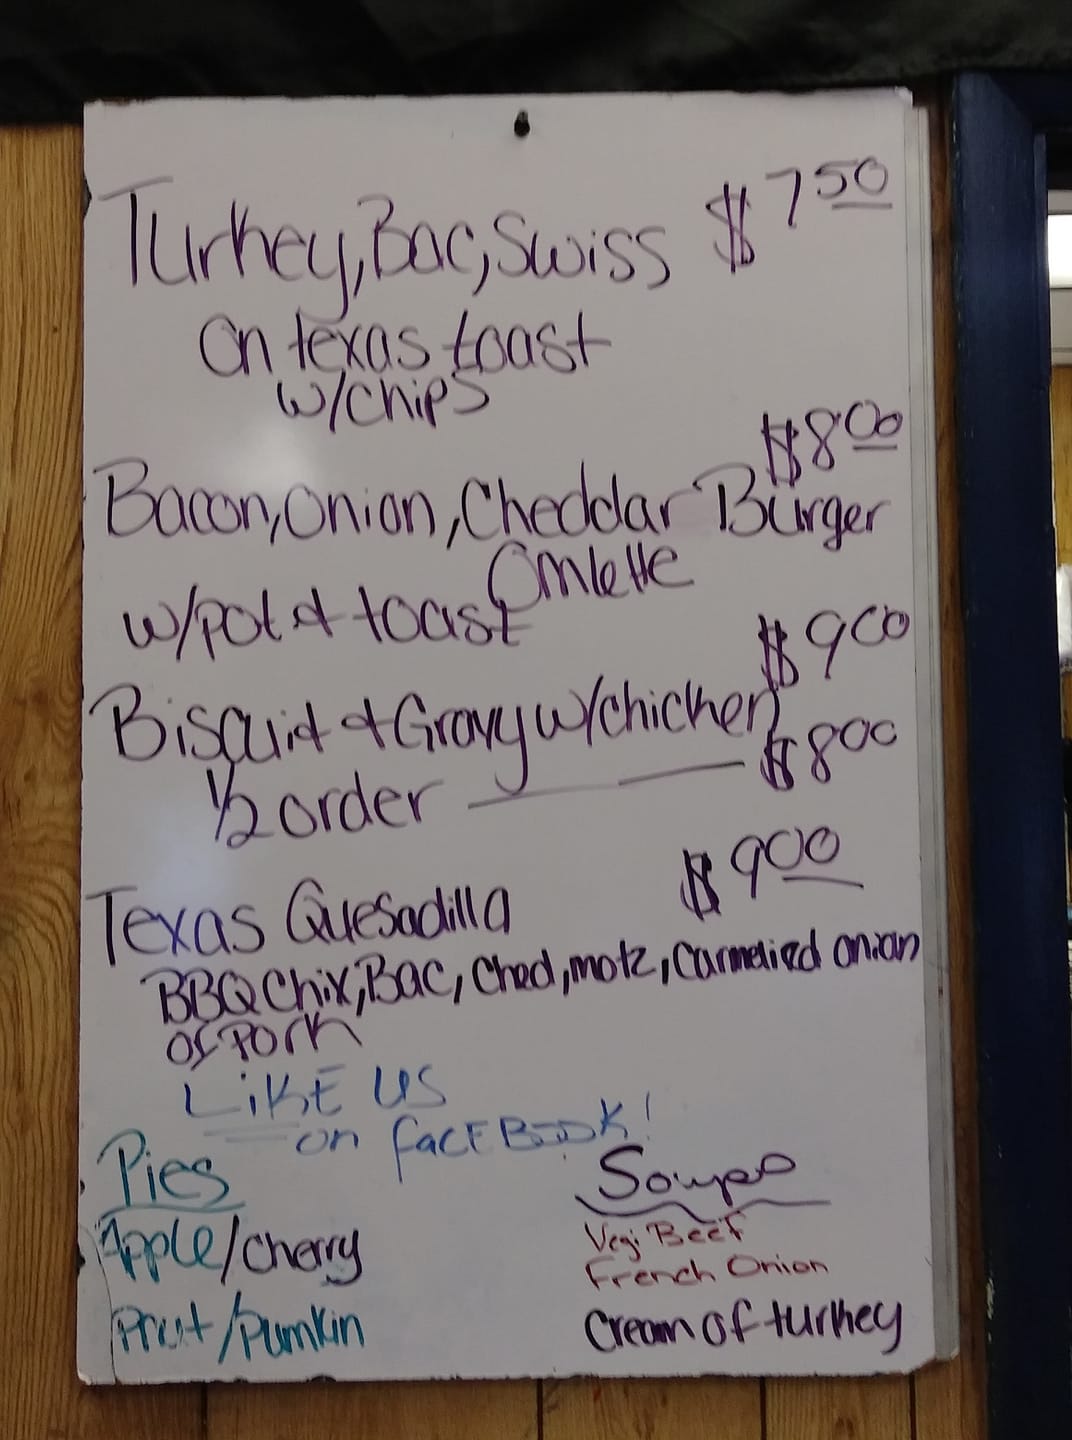 Turkey, Bac, Swiss $7 50
On texas toast
w/chips
$8 00
Bacon, Onion, Cheddar Burger
Omlette
w/pot & toast
$9 00
Biscuit + Gravy w/chicken
1/2 order — $8 00
Texas Quesadilla $9 00
BBQ Chix, Bac, Ched, motz, Carmelied onion
or Pork
LiKE US
on faCEBOOK!
Pies
Apple/Cherry
/Pumkin
Soups
Vegi Beef
French Onion
Cream of turkey